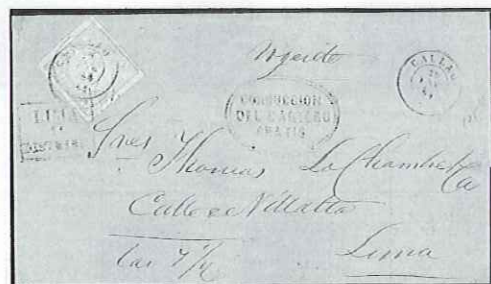 Urgente
CALLAO
CONDUCCION
DEL CARTERO
GRATIS
LIMA
Sres Thomas La Chambre & Ca
Calle de Villalta
Lima